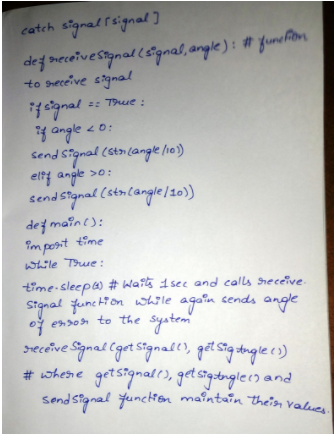 catch signal [signal]
def receiveSignal (signal, angle) : # function
to receive signal
if signal == True :
if angle < 0 :
send Signal (str(angle/10))
elif angle >0 :
send Signal (str(angle/10))
def main ( ) :
import time
while True :
time.sleep() # Waits 1sec and calls receive.
Signal function while again sends angle
of error to the system
receive Signal (getSignal(), getSigAngle())
# where getSignal(), getSigAngle() and
sendSignal function maintain their values.